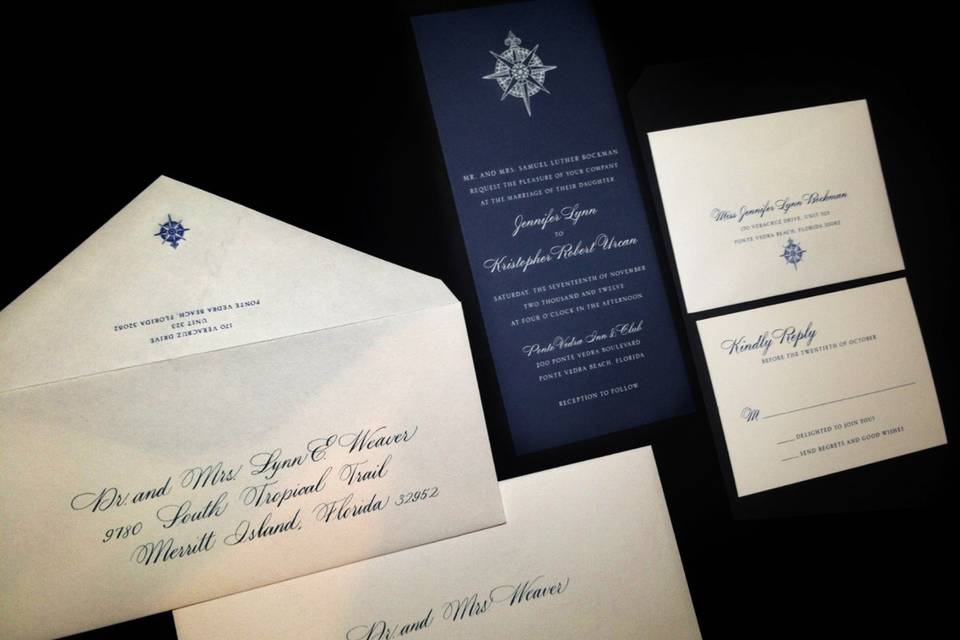 170 VERACRUZ DRIVE
UNIT 323
PONTE VEDRA BEACH, FLORIDA 32082
Dr. and Mrs. Lynn E. Weaver
9780 South Tropical Trail
Merritt Island, Florida 32952
Dr. and Mrs Weaver
MR. AND MRS. SAMUEL LUTHER BOCKMAN
REQUEST THE PLEASURE OF YOUR COMPANY
AT THE MARRIAGE OF THEIR DAUGHTER
Jennifer Lynn
TO
Kristopher Robert Urcan
SATURDAY, THE SEVENTEENTH OF NOVEMBER
TWO THOUSAND AND TWELVE
AT FOUR O'CLOCK IN THE AFTERNOON
Ponte Vedra Inn & Club
200 PONTE VEDRA BOULEVARD
PONTE VEDRA BEACH, FLORIDA
RECEPTION TO FOLLOW
Miss Jennifer Lynn Bockman
170 VERACRUZ DRIVE, UNIT 323
PONTE VEDRA BEACH, FLORIDA 32082
Kindly Reply
BEFORE THE TWENTIETH OF OCTOBER
M
DELIGHTED TO JOIN YOU!
SEND REGRETS AND GOOD WISHES